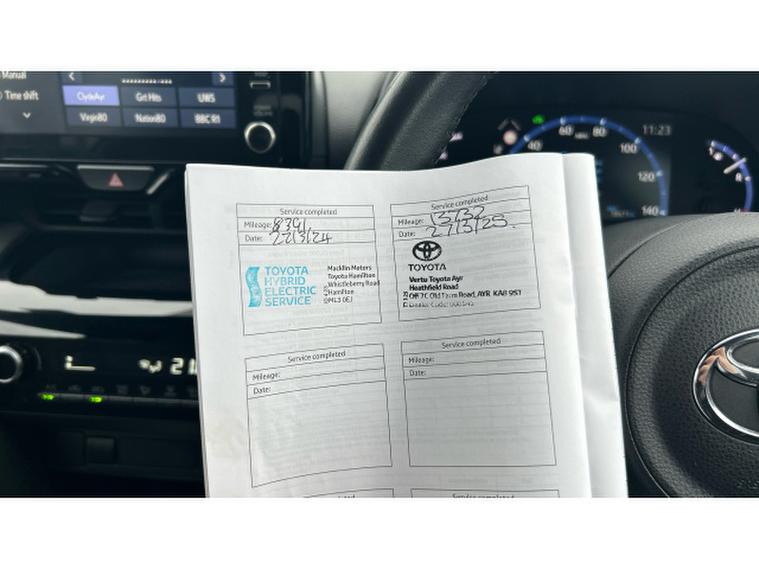 Manual
Time shift
ClydeAyr
Grt Hits
UWS
Virgin80
Nation80
BBC R1
40
60
MPH
80
100
120
140
11:23
21
Service completed
Mileage: 8391
Date: 22/3/24
TOYOTA
HYBRID
ELECTRIC
SERVICE
Macklin Motors
Toyota Hamilton
Whistleberry Road
Hamilton
ML3 0EJ
Service completed
Mileage: 13732
Date: 27/3/25.
TOYOTA
Vertu Toyota Ayr
Heathfield Road
Off 7C Old Farm Road, AYR KA8 9ST
Service completed
Mileage:
Date:
Service completed
Mileage:
Date:
Service completed